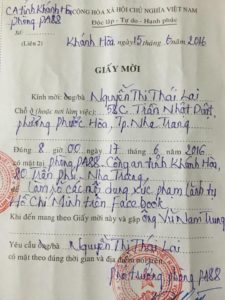 CA tỉnh Khánh Hòa CỘNG HÒA XÃ HỘI CHỦ NGHĨA VIỆT NAM
phòng PA88 Độc lập - Tự do - Hạnh phúc
Số:
(Liên 2) Khánh Hòa, ngày 15 tháng 6 năm 2016
GIẤY MỜI
mời: Ông/bà Nguyễn Thị Thái Lai
Chỗ ở (hoặc nơi làm việc) 58C Trần Nhật Duật,
phường Phước Hòa, Tp. Nha Trang
Đúng 8 giờ 00, ngày 17 tháng 6 năm 2016
có mặt tại phòng PA88, Công an tỉnh Khánh Hòa,
80 Trần Phú - Nha Trang
để làm rõ các nội dung xúc phạm lãnh tụ
Hồ Chí Minh trên Facebook
Khi đến mang theo Giấy mời này và gặp ông Vũ Nam Trung
Yêu cầu ông/bà Nguyễn Thị Thái Lai
có mặt theo đúng thời gian và địa điểm nói trên.
Phó trưởng phòng PA88